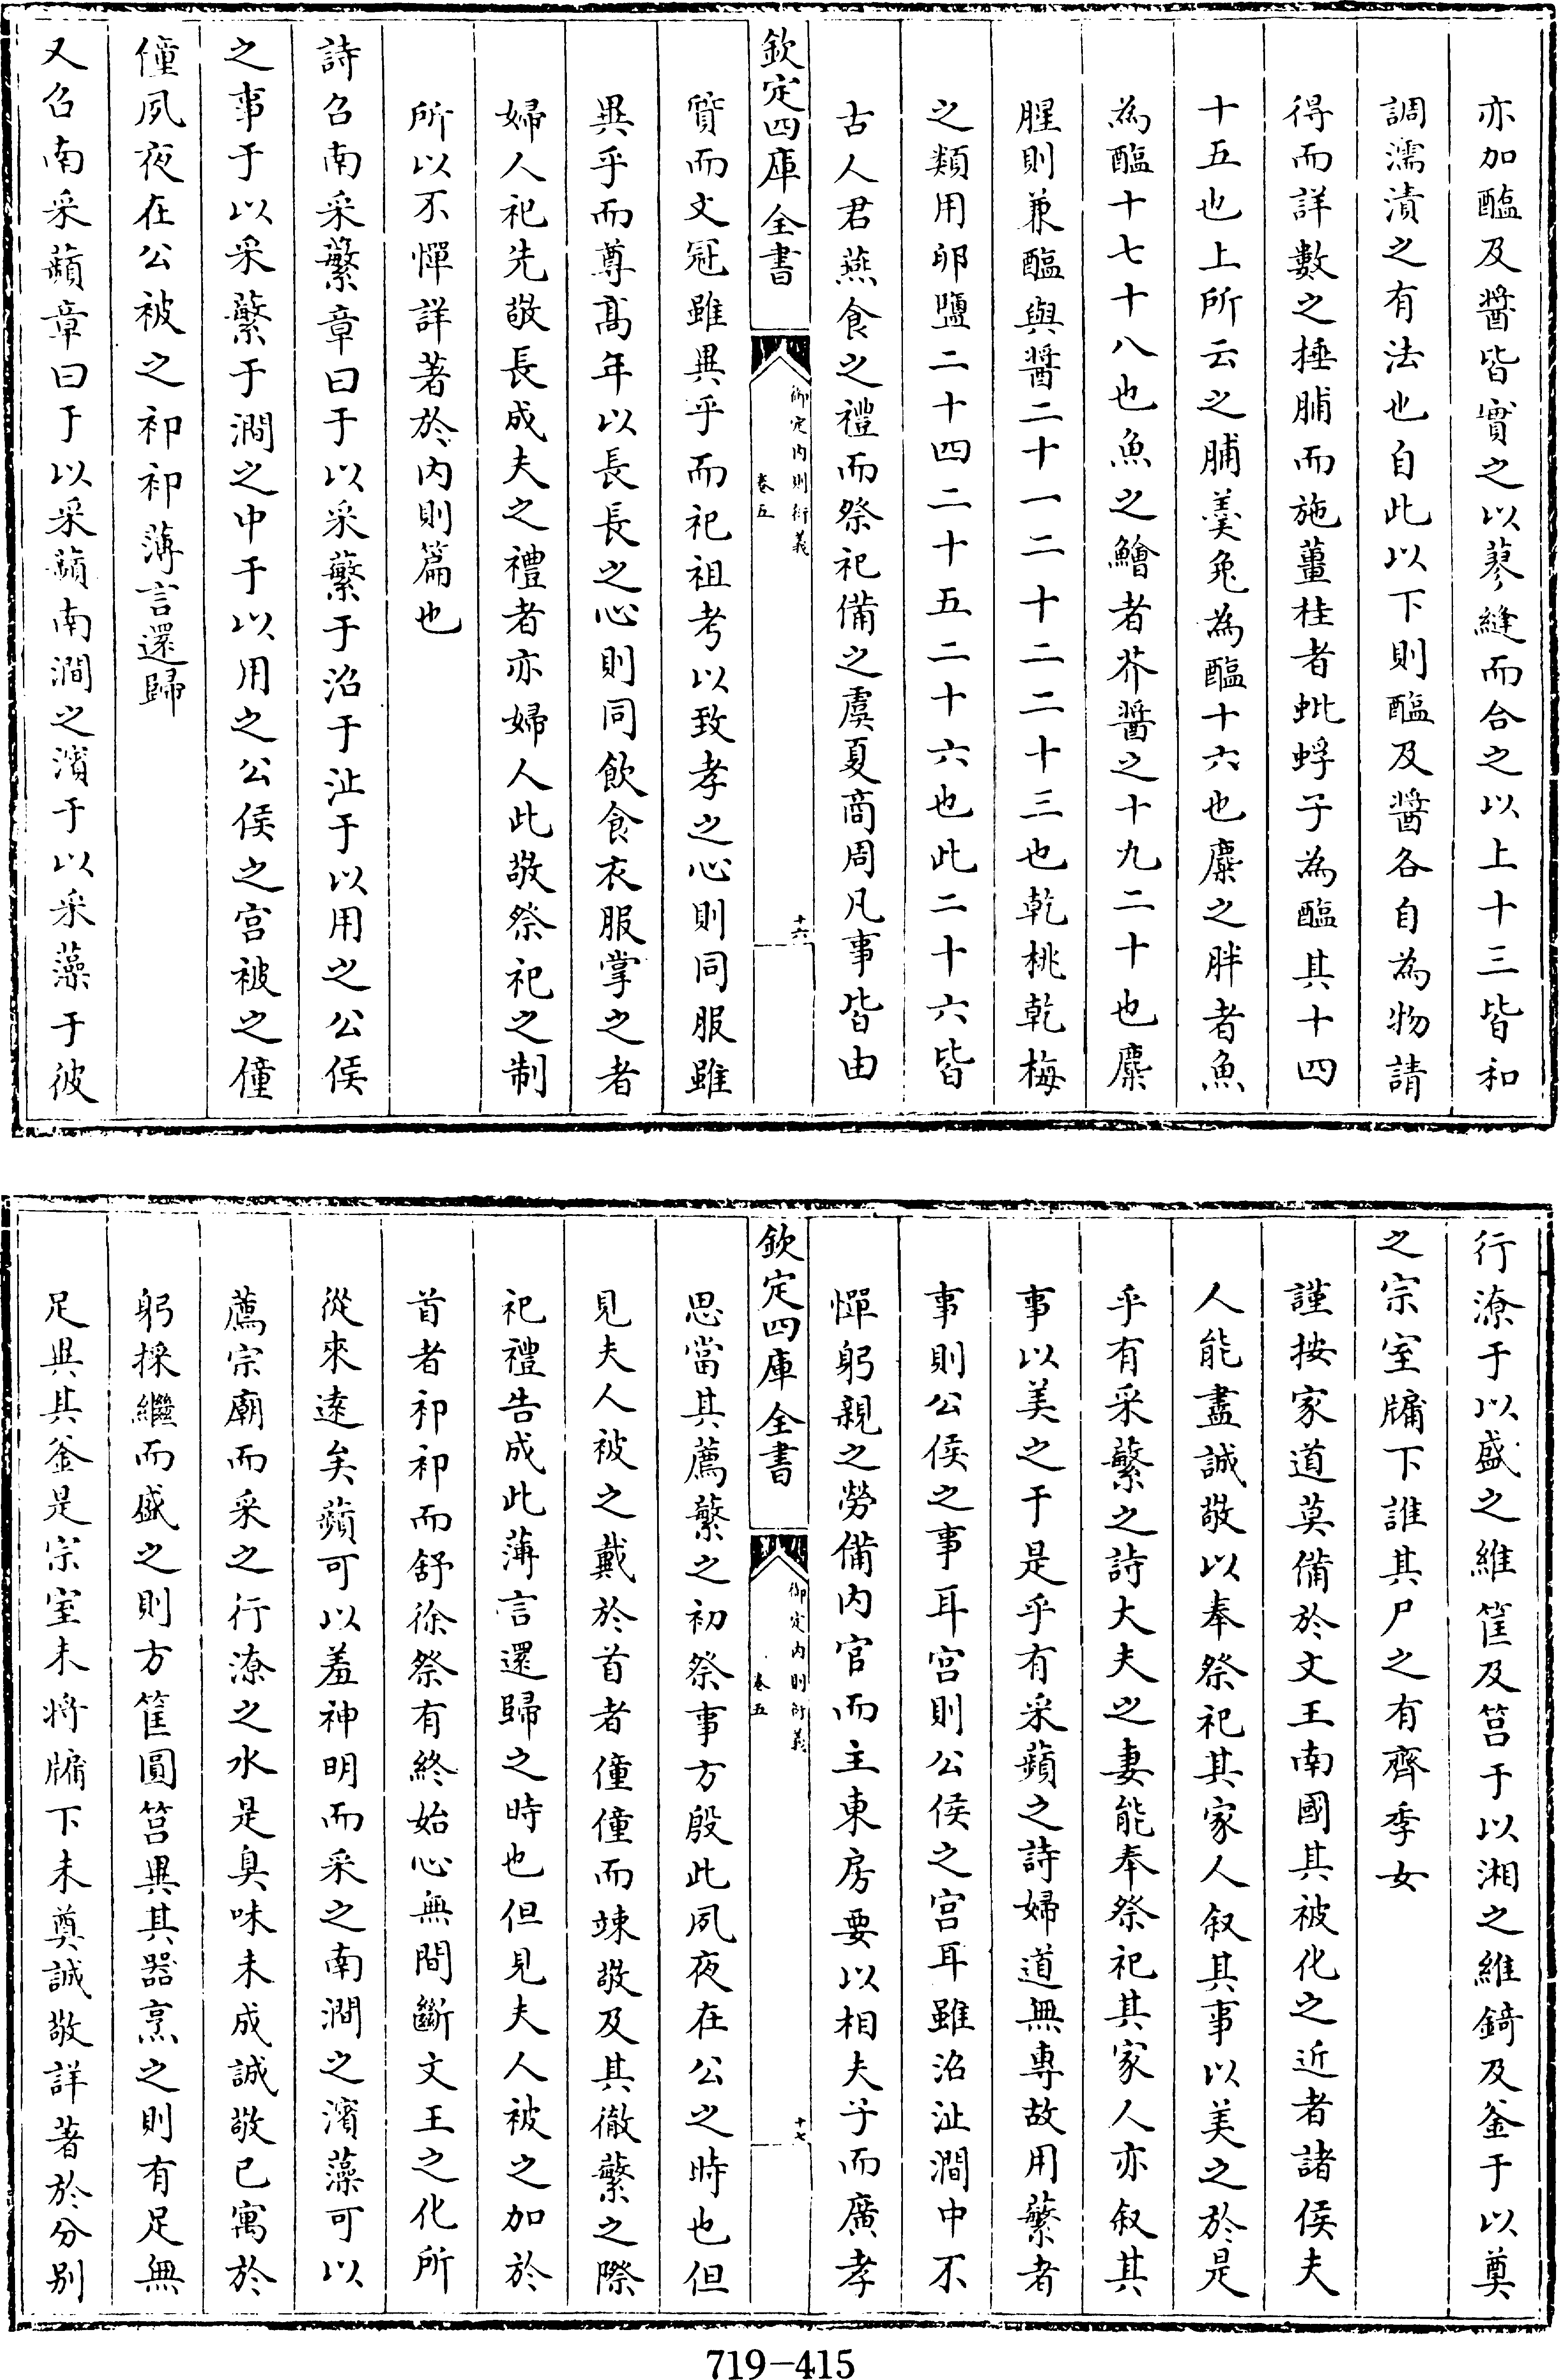 亦加醢及醬皆實之以蓼縫而合之以上十三皆和
調濡漬之有法也自此以下則醢及醬各自為物請
得而詳數之捶脯而施薑桂者蚍蜉子為醢其十四
十五也上所云之脯羹兔為醢十六也麋之胖者魚
為醢十七十八也魚之鱠者芥醬之十九二十也麋
腥則兼醢與醬二十一二十二二十三也乾桃乾梅
之類用卵鹽二十四二十五二十六也此二十六皆
古人君燕食之禮而祭祀備之虞夏商周凡事皆由
欽定四庫全書
御定内則衍義
卷五
十六
質而文冠雖異乎而祀祖考以致孝之心則同服雖
異乎而尊髙年以長長之心則同飲食衣服掌之者
婦人祀先敬長成夫之禮者亦婦人此敬祭祀之制
所以不憚詳著於内則篇也
詩召南采蘩章曰于以采蘩于沼于沚于以用之公侯
之事于以采蘩于澗之中于以用之公侯之宫被之僮
僮夙夜在公被之祁祁薄言還歸
又召南采蘋章曰于以采蘋南澗之濱于以采藻于彼
行潦于以盛之維筐及筥于以湘之維錡及釜于以奠
之宗室牖下誰其尸之有齊季女
謹按家道莫備於文王南國其被化之近者諸侯夫
人能盡誠敬以奉祭祀其家人叙其事以美之於是
乎有采蘩之詩大夫之妻能奉祭祀其家人亦叙其
事以美之于是乎有采蘋之詩婦道無專故用蘩者
事則公侯之事耳宫則公侯之宫耳雖沼沚澗中不
憚躬親之勞備内官而主東房要以相夫子而廣孝
欽定四庫全書
御定内則衍義
卷五
十七
思當其薦蘩之初祭事方殷此夙夜在公之時也但
見夫人被之戴於首者僮僮而竦敬及其徹蘩之際
祀禮告成此薄言還歸之時也但見夫人被之加於
首者祁祁而舒徐祭有終始心無間斷文王之化所
從來逺矣蘋可以羞神明而采之南澗之濱藻可以
薦宗廟而采之行潦之水是臭味未成誠敬已寓於
躬採繼而盛之則方筐圓筥異其器烹之則有足無
足異其釜是宗室未將牖下未奠誠敬詳著於分别
719-415